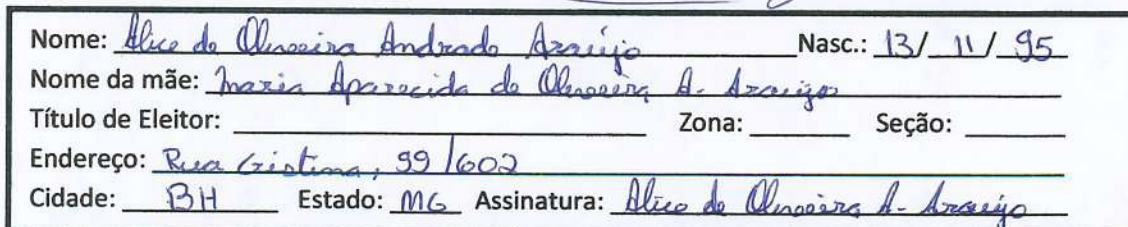 Nome: Alice de Oliveira Andrade Araújo Nasc.: 13/ 11/ 95
Nome da mãe: Maria Aparecida de Oliveira A. Araújo
Título de Eleitor: Zona: Seção:
Endereço: Rua Cristina, 99/602
Cidade: BH Estado: MG Assinatura: Alice de Oliveira A. Araújo